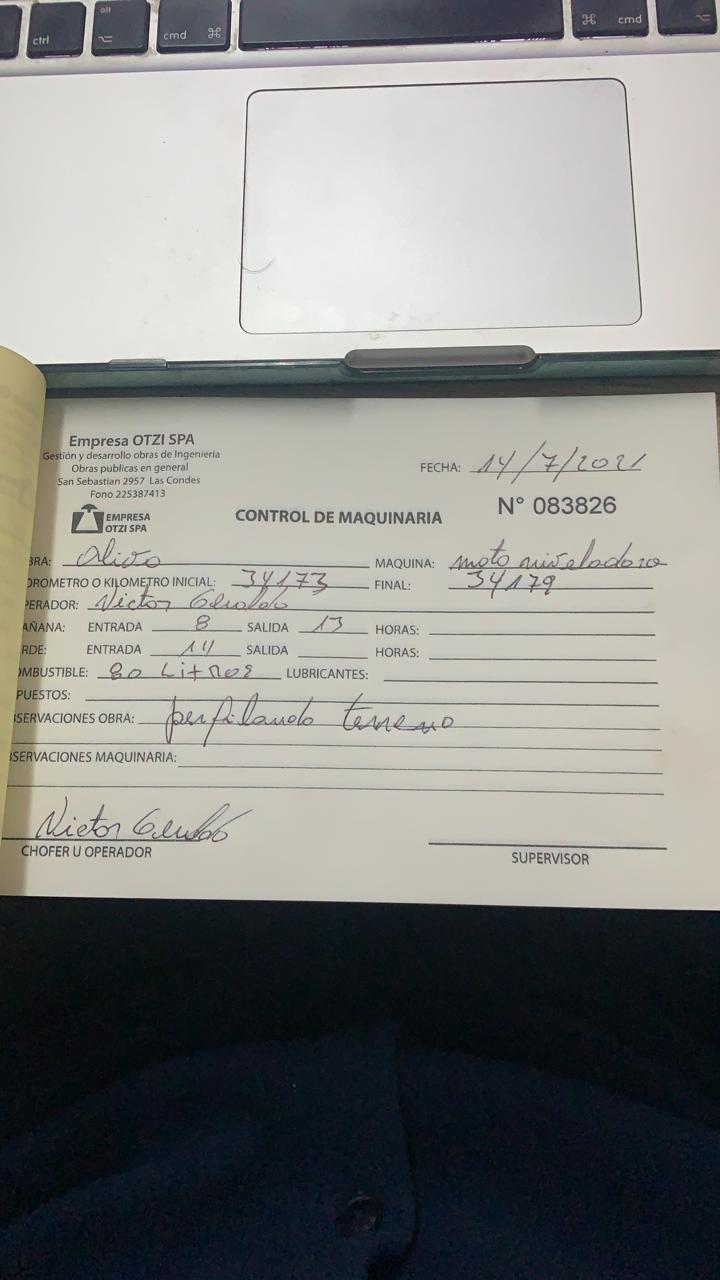 ctrl
alt
cmd ⌘
⌘ cmd
Empresa OTZI SPA
Gestión y desarrollo obras de Ingeniería
Obras publicas en general
San Sebastian 2957 Las Condes
Fono 225387413
EMPRESA
OTZI SPA
FECHA: 14/7/2021
CONTROL DE MAQUINARIA
N° 083826
BRA: olivo MAQUINA: moto niveladora
OROMETRO O KILOMETRO INICIAL: 34173 FINAL: 34179
PERADOR: Victor
AÑANA: ENTRADA 8 SALIDA 13 HORAS:
RDE: ENTRADA 14 SALIDA HORAS:
OMBUSTIBLE: 80 Litros LUBRICANTES:
PUESTOS:
SERVACIONES OBRA: perfilando terreno
SERVACIONES MAQUINARIA:
Victor
CHOFER U OPERADOR
SUPERVISOR